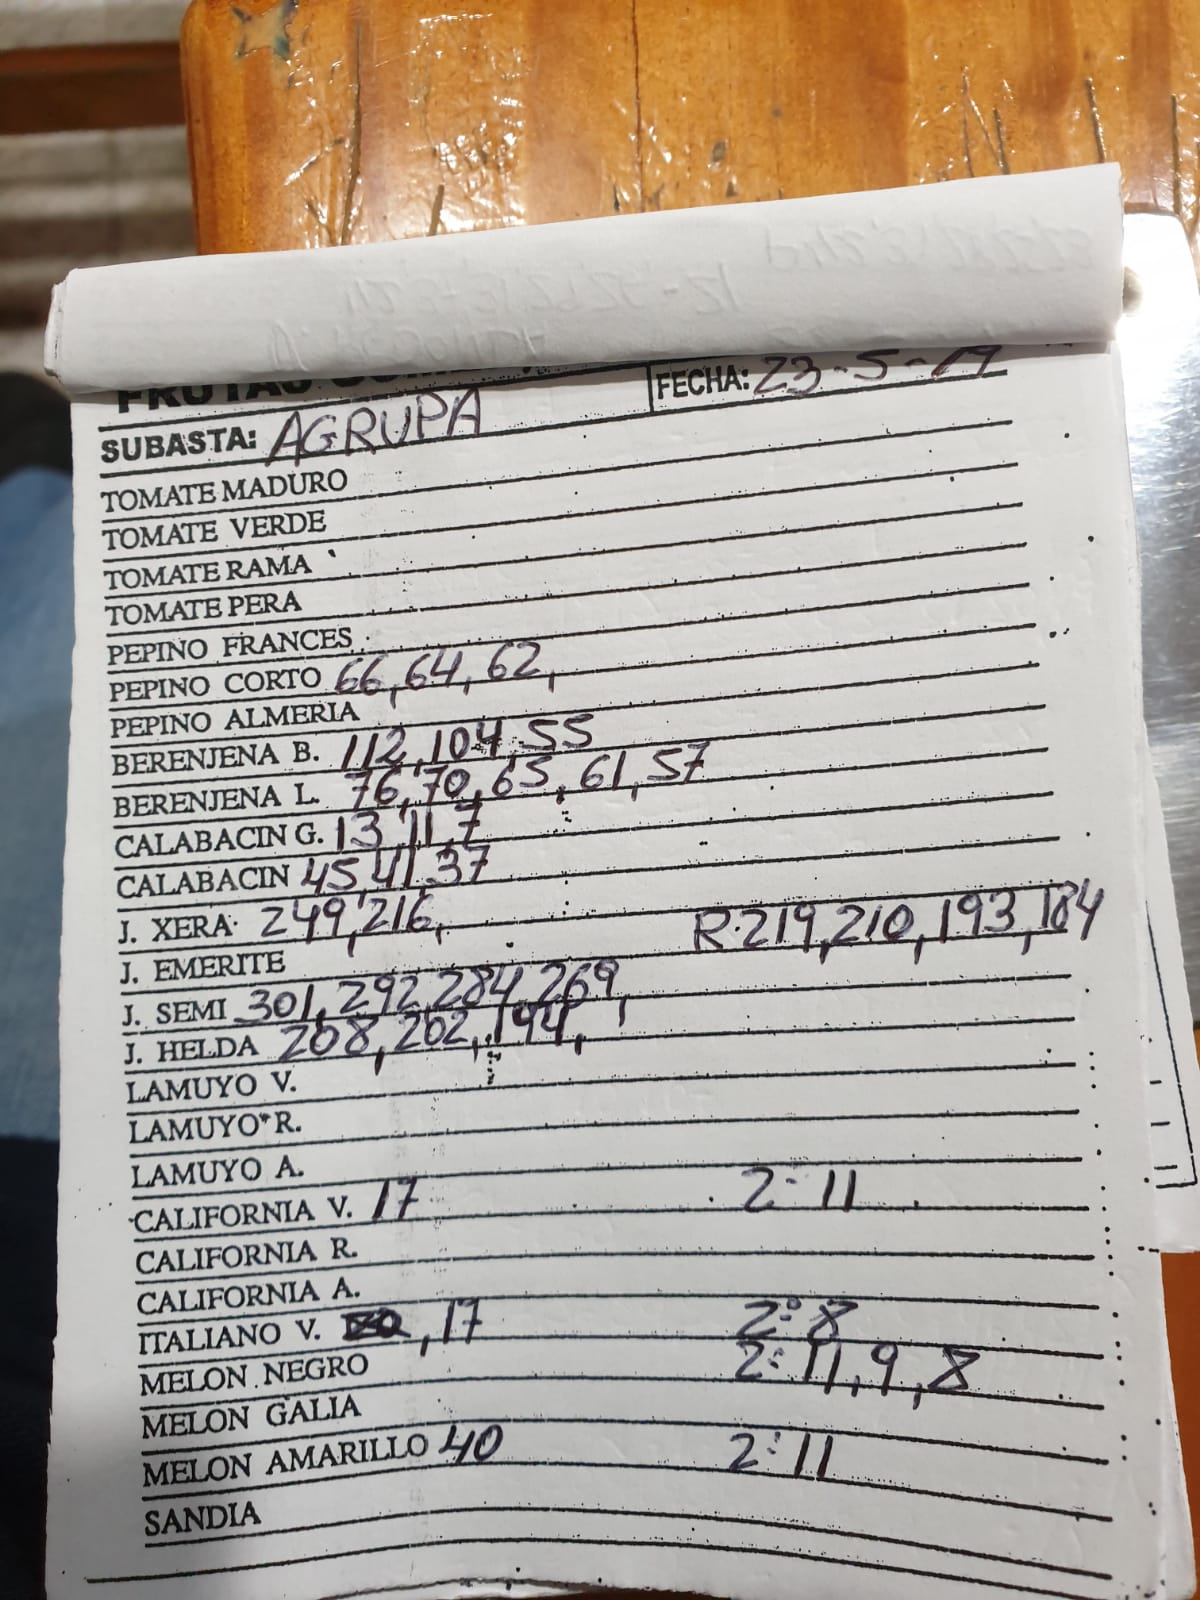 FRUTAS
SUBASTA: AGRUPA FECHA: 23-5-19
TOMATE MADURO
TOMATE VERDE
TOMATE RAMA
TOMATE PERA
PEPINO FRANCES
PEPINO CORTO 66, 64, 62,
PEPINO ALMERIA
BERENJENA B. 112, 104, 55
BERENJENA L. 76, 70, 65, 61, 57
CALABACIN G. 13, 11, 7
CALABACIN 45, 41, 37
J. XERA 249, 216, R. 219, 210, 193, 184
J. EMERITE
J. SEMI 301, 292, 284, 269,
J. HELDA 208, 202, 194,
LAMUYO V.
LAMUYO R.
LAMUYO A.
CALIFORNIA V. 17 2: 11
CALIFORNIA R.
CALIFORNIA A.
ITALIANO V. , 17 2: 8
MELON NEGRO 2: 11, 9, 8
MELON GALIA
MELON AMARILLO 40 2: 11
SANDIA